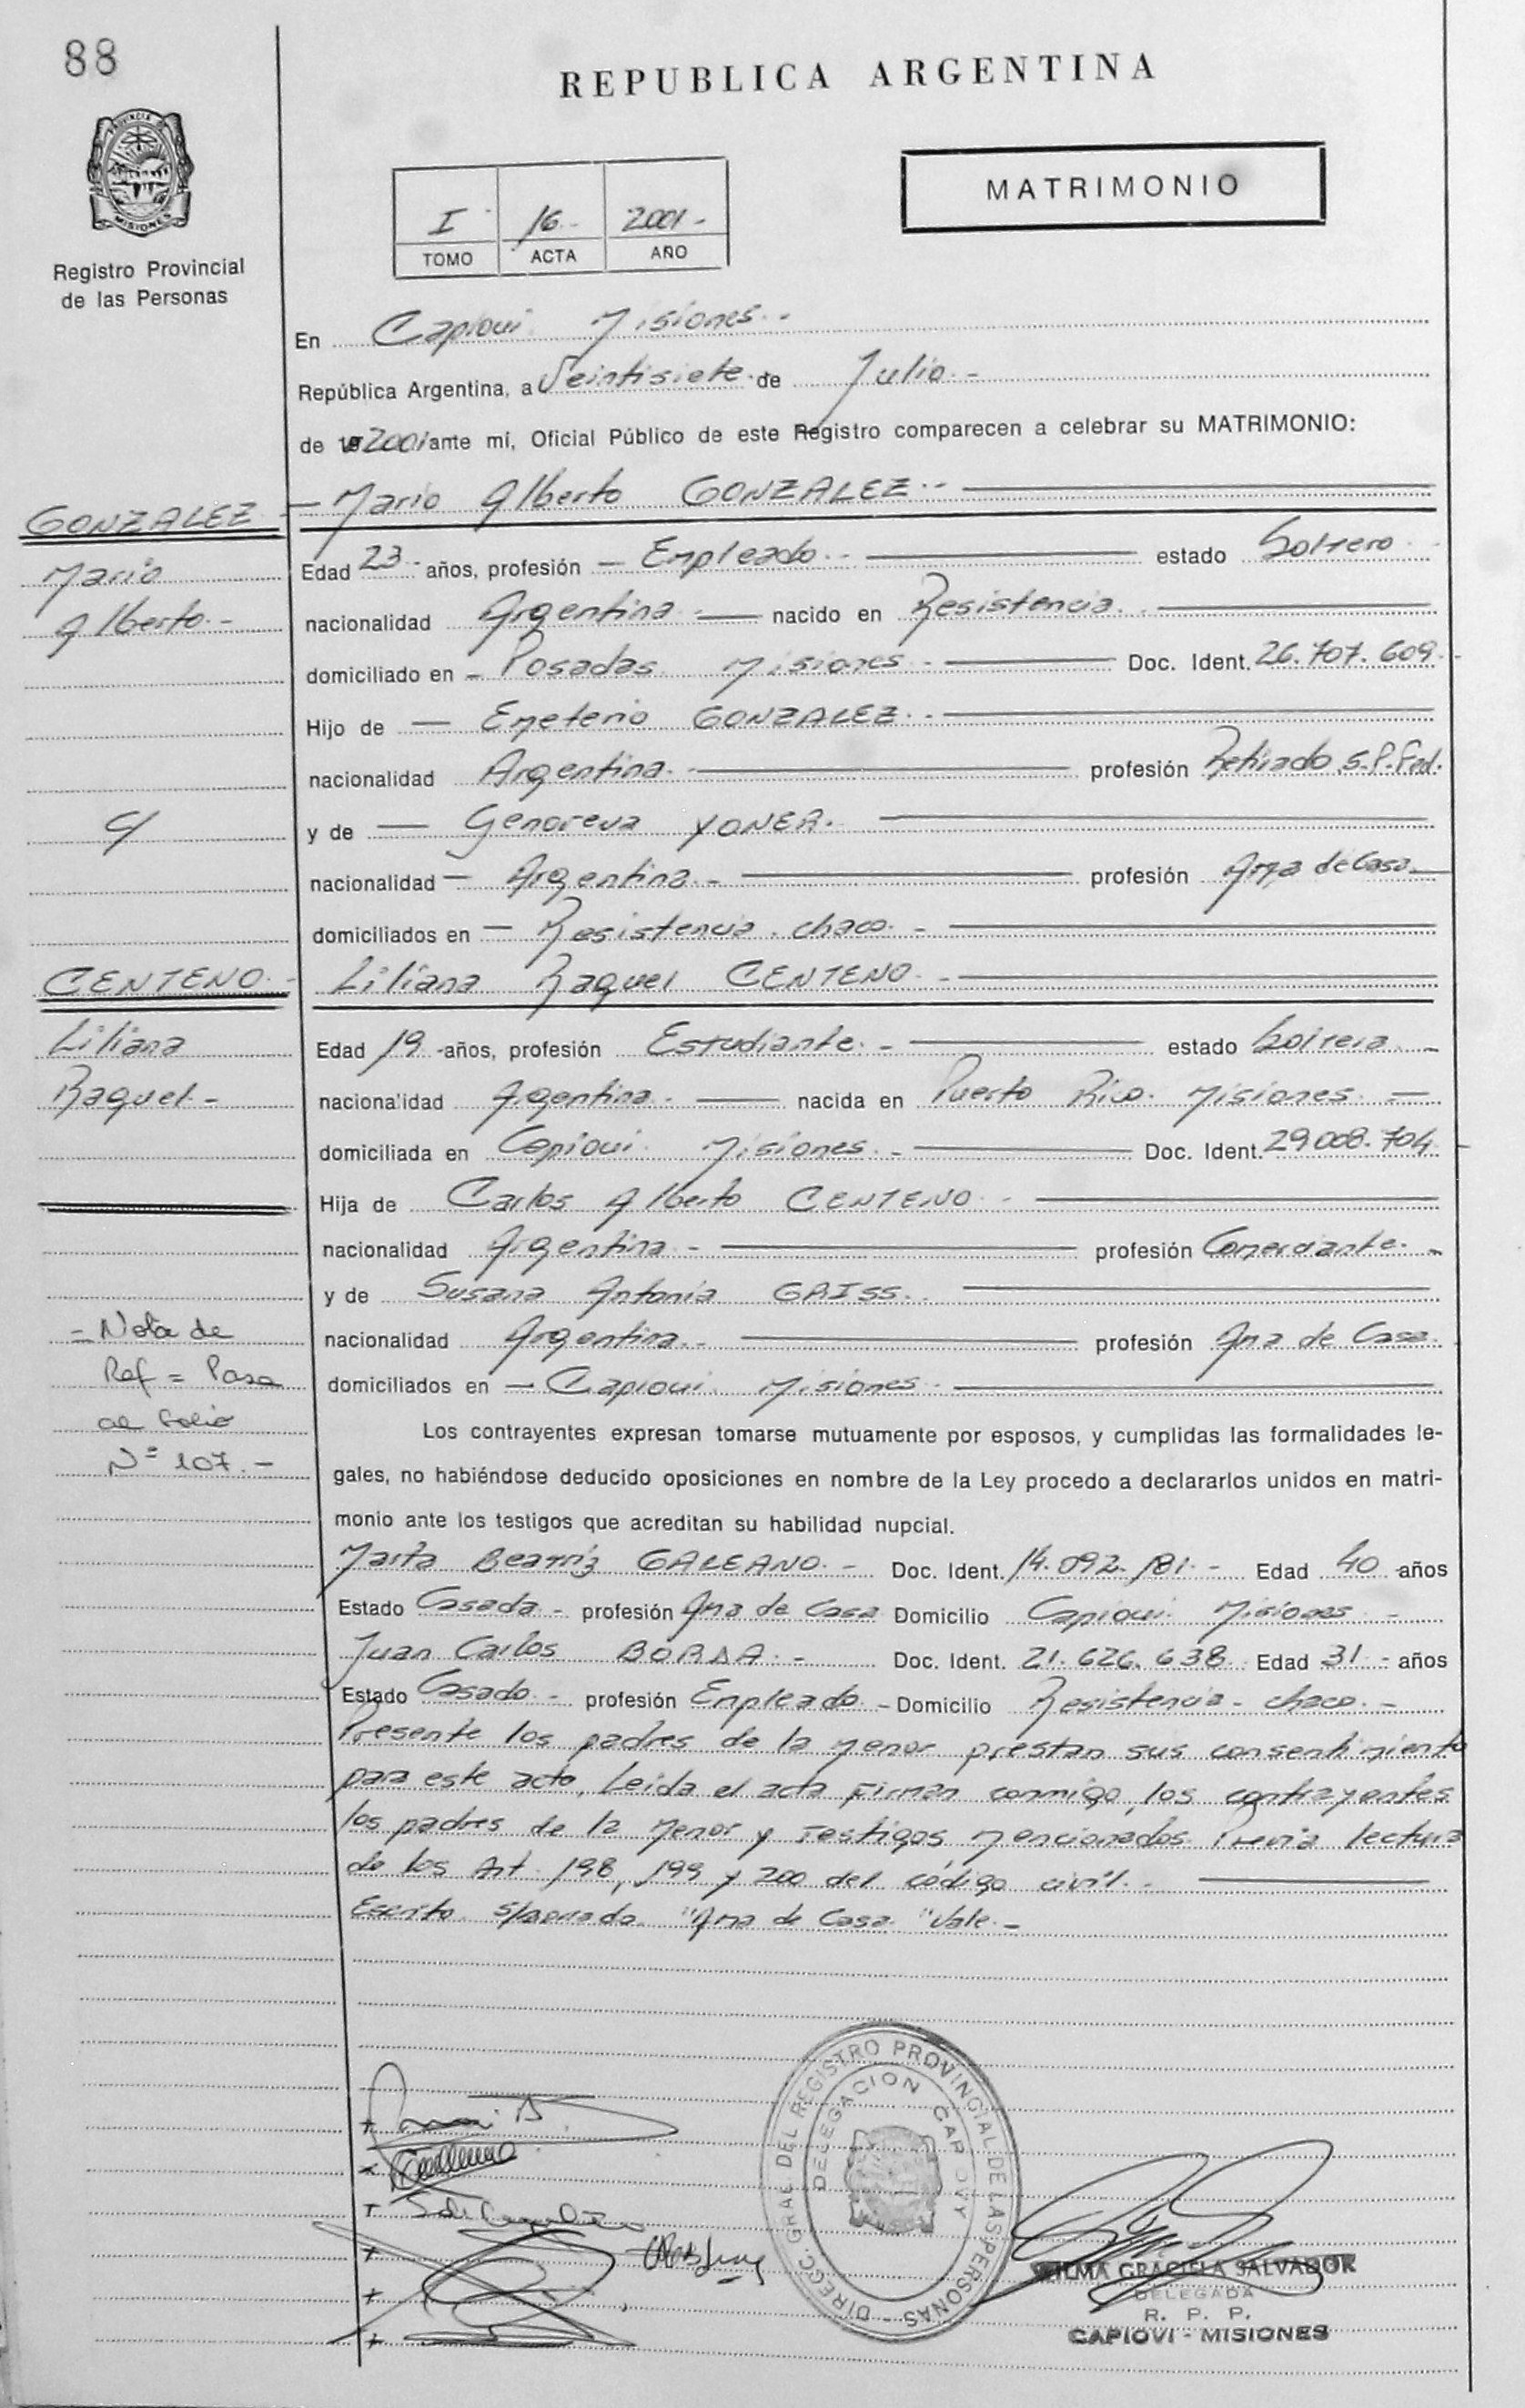 88
REPUBLICA ARGENTINA
PROVINCIA DE
MISIONES
MATRIMONIO
I 16 2001-
TOMO ACTA AÑO
Registro Provincial
de las Personas
En Capiovi. Misiones.-
República Argentina, a Veintisiete de Julio.-
de 19 2001 ante mí, Oficial Público de este Registro comparecen a celebrar su MATRIMONIO:
GONZALEZ - Mario Alberto GONZALEZ.-
Mario Edad 23- años, profesión - Empleado.- estado Soltero.
Alberto.- nacionalidad Argentina.- nacido en Resistencia.
domiciliado en - Posadas Misiones.- Doc. Ident. 26.707.609.-
Hijo de - Emeterio GONZALEZ.-
nacionalidad Argentina.- profesión Retirado S.P.Fed.
c/ y de - Genoveva YONER.
nacionalidad - Argentina.- profesión Ama de Casa.-
domiciliados en - Resistencia. Chaco.-
CENTENO.- Liliana Raquel CENTENO.-
Liliana Edad 19 -años, profesión Estudiante.- estado Soltera.-
Raquel.- nacionalidad Argentina.- nacida en Puerto Rico. Misiones.-
domiciliada en Capiovi. Misiones.- Doc. Ident. 29.008.704.-
Hija de Carlos Alberto CENTENO.-
nacionalidad Argentina.- profesión Comerciante.-
y de Susana Antonia GRISS.
= Nota de nacionalidad Argentina.- profesión Ama de Casa.
Ref = Pasa domiciliados en - Capiovi. Misiones.-
al Folio Los contrayentes expresan tomarse mutuamente por esposos, y cumplidas las formalidades le-
Nº 107.- gales, no habiéndose deducido oposiciones en nombre de la Ley procedo a declararlos unidos en matri-
monio ante los testigos que acreditan su habilidad nupcial.
Marta Beatriz GALEANO.- Doc. Ident. 14.092.181.- Edad 40 -años
Estado Casada - profesión Ama de Casa Domicilio Capiovi. Misiones -
Juan Carlos BORDA.- Doc. Ident. 21.626.638 Edad 31 - años
Estado Casado.- profesión Empleado - Domicilio Resistencia - Chaco.-
Presente los padres de la menor prestan sus consentimiento
para este acto, Leida el acta Firman conmigo, los contrayentes
los padres de la menor y Testigos mencionados. Previa lectura
de los Art. 198, 199 y 200 del código civil.-
Escrito s/borrado "Ama de Casa" Vale.-
DIRECC. GRAL. DEL REGISTRO PROVINCIAL DE LAS PERSONAS -
DELEGACION CAPIOVY
WILMA GRACIELA SALVADOR
DELEGADA
R. P. P.
CAPIOVI - MISIONES